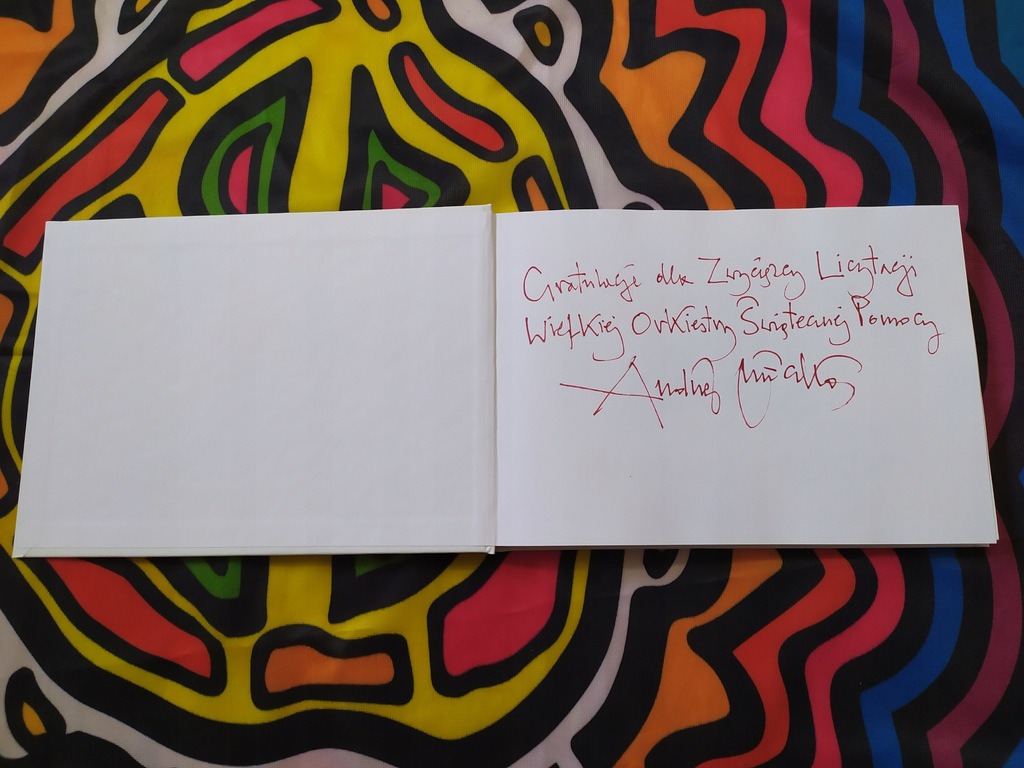 Gratulacje dla Zwycięzcy Licytacji
Wielkiej Orkiestry Świątecznej Pomocy
Andrzej